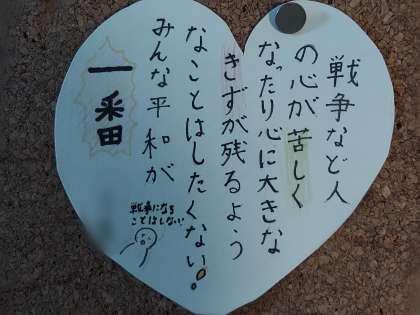 戦争など人
の心が苦しく
なったり心に大きな
きずが残るよう
なことはしたくない!
みんな平和が
一番
戦争になる
ことはしない